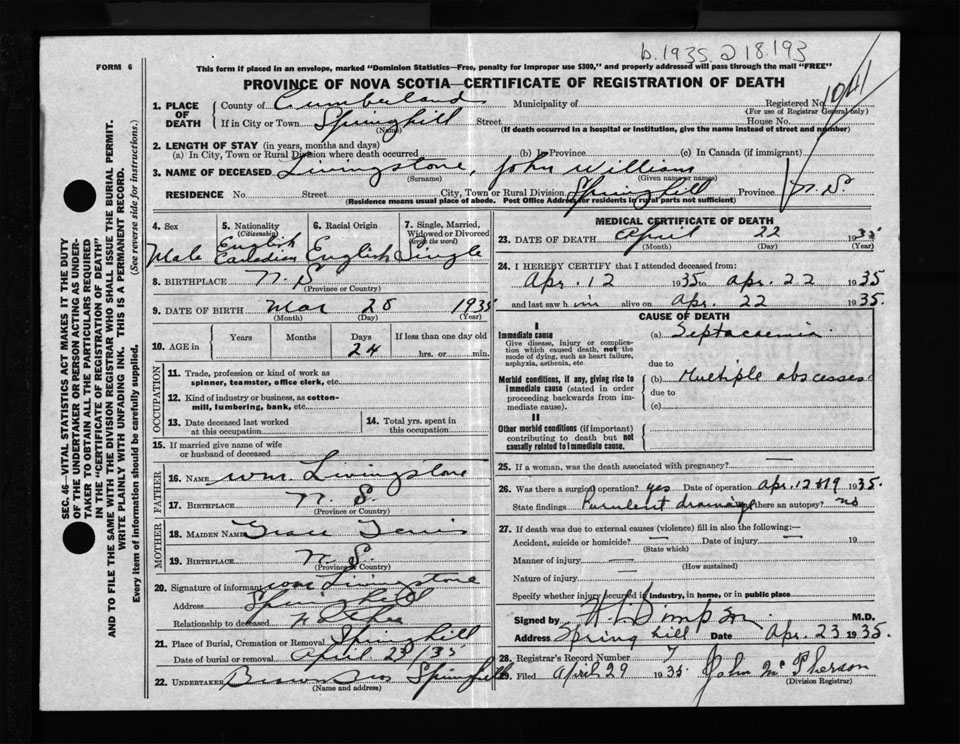 b.1935 218.193
FORM 6
This form if placed in an envelope, marked "Dominion Statistics—Free, penalty for improper use $300," and properly addressed will pass through the mail "FREE"
PROVINCE OF NOVA SCOTIA—CERTIFICATE OF REGISTRATION OF DEATH
1041
1. PLACE OF DEATH
County of Cumberland Municipality of Registered No.
(For use of Registrar General only)
If in City or Town Springhill Street House No.
(Name) (If death occurred in a hospital or institution, give the name instead of street and number)
2. LENGTH OF STAY (in years, months and days)
(a) In City, Town or Rural Division where death occurred (b) In Province (c) In Canada (if immigrant)
3. NAME OF DECEASED Livingstone, John William
(Surname) (Given name or names)
RESIDENCE No. Street City, Town or Rural Division Springhill Province N.S
(Residence means usual place of abode. Post Office Address for residents in rural parts not sufficient)
4. Sex 5. Nationality (Citizenship) 6. Racial Origin 7. Single, Married, Widowed or Divorced (write the word)
Male English Canadian English Single
8. BIRTHPLACE N.S
(Province or Country)
9. DATE OF BIRTH Mar 28 1935
(Month) (Day) (Year)
10. AGE in Years Months Days If less than one day old
24 hrs. or min.
OCCUPATION
11. Trade, profession or kind of work as spinner, teamster, office clerk, etc.
12. Kind of industry or business, as cotton-mill, lumbering, bank, etc.
13. Date deceased last worked at this occupation
14. Total yrs. spent in this occupation
15. If married give name of wife or husband of deceased
FATHER
16. NAME Wm. Livingstone
17. BIRTHPLACE N.S.
(Province or Country)
MOTHER
18. MAIDEN NAME Grace
19. BIRTHPLACE N.S.
(Province or Country)
20. Signature of informant Wm Livingstone
Address Springhill
Relationship to deceased Father
21. Place of Burial, Cremation or Removal Springhill
Date of burial or removal April 23/35
22. UNDERTAKER Brown Bros Springhill
(Name and address)
MEDICAL CERTIFICATE OF DEATH
23. DATE OF DEATH April 22 1935
(Month) (Day) (Year)
24. I HEREBY CERTIFY that I attended deceased from:
Apr. 12 1935 to Apr. 22 1935
and last saw h im alive on Apr. 22 1935.
CAUSE OF DEATH
I
Immediate cause
Give disease, injury or complication which caused death, not the mode of dying, such as heart failure, asphyxia, asthenia, etc.
(a) Septacaemia
due to
Morbid conditions, if any, giving rise to immediate cause (stated in order proceeding backwards from immediate cause).
(b) Multiple abscesses
due to
(c)
II
Other morbid conditions (if important) contributing to death but not causally related to immediate cause.
25. If a woman, was the death associated with pregnancy? —
26. Was there a surgical operation? yes Date of operation Apr. 12 & 19 1935.
State findings Purulent drainage Was there an autopsy? no
27. If death was due to external causes (violence) fill in also the following:—
Accident, suicide or homicide? — Date of injury — 19
(State which)
Manner of injury —
(How sustained)
Nature of injury —
Specify whether injury occurred in industry, in home, or in public place
Signed by M.D.
Address Spring hill Date Apr. 23 1935.
28. Registrar's Record Number 7
29. Filed April 29 1935 John McPherson
(Division Registrar)
SEC. 46—VITAL STATISTICS ACT MAKES IT THE DUTY
OF THE UNDERTAKER OR PERSON ACTING AS UNDER-
TAKER TO OBTAIN ALL THE PARTICULARS REQUIRED
IN THE "CERTIFICATE OF REGISTRATION OF DEATH"
AND TO FILE THE SAME WITH THE DIVISION REGISTRAR WHO SHALL ISSUE THE BURIAL PERMIT.
WRITE PLAINLY WITH UNFADING INK. THIS IS A PERMANENT RECORD.
Every item of information should be carefully supplied. (See reverse side for instructions.)